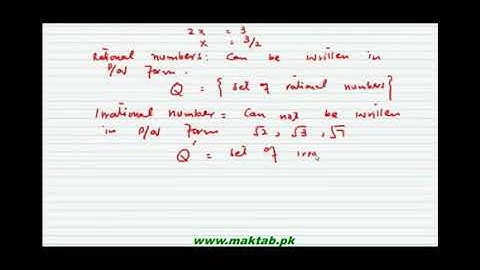 2x = 3
x = 3/2
Rational numbers: Can be written in
P/q form.
Q = { set of rational numbers }
Irrational number = Can not be written
in P/q form √2, √3, √7
Q' = set of irra
www.maktab.pk